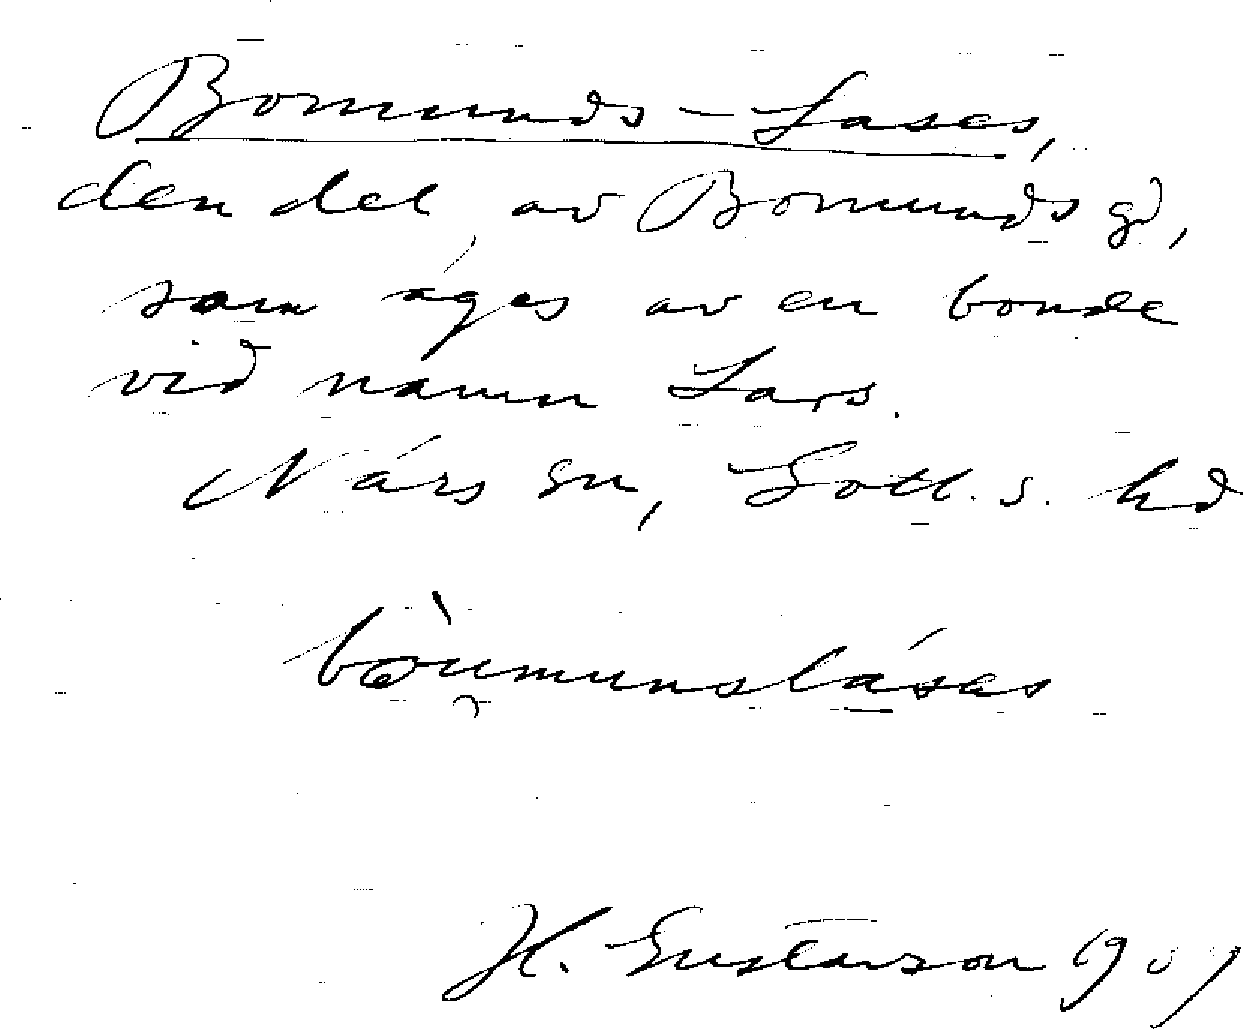 Bomunds-Lases,
den del av Bomunds gd,
som äges av en bonde
vid namn Lars.
När sn, Gotl. s. hd
H. Gustavson 1907